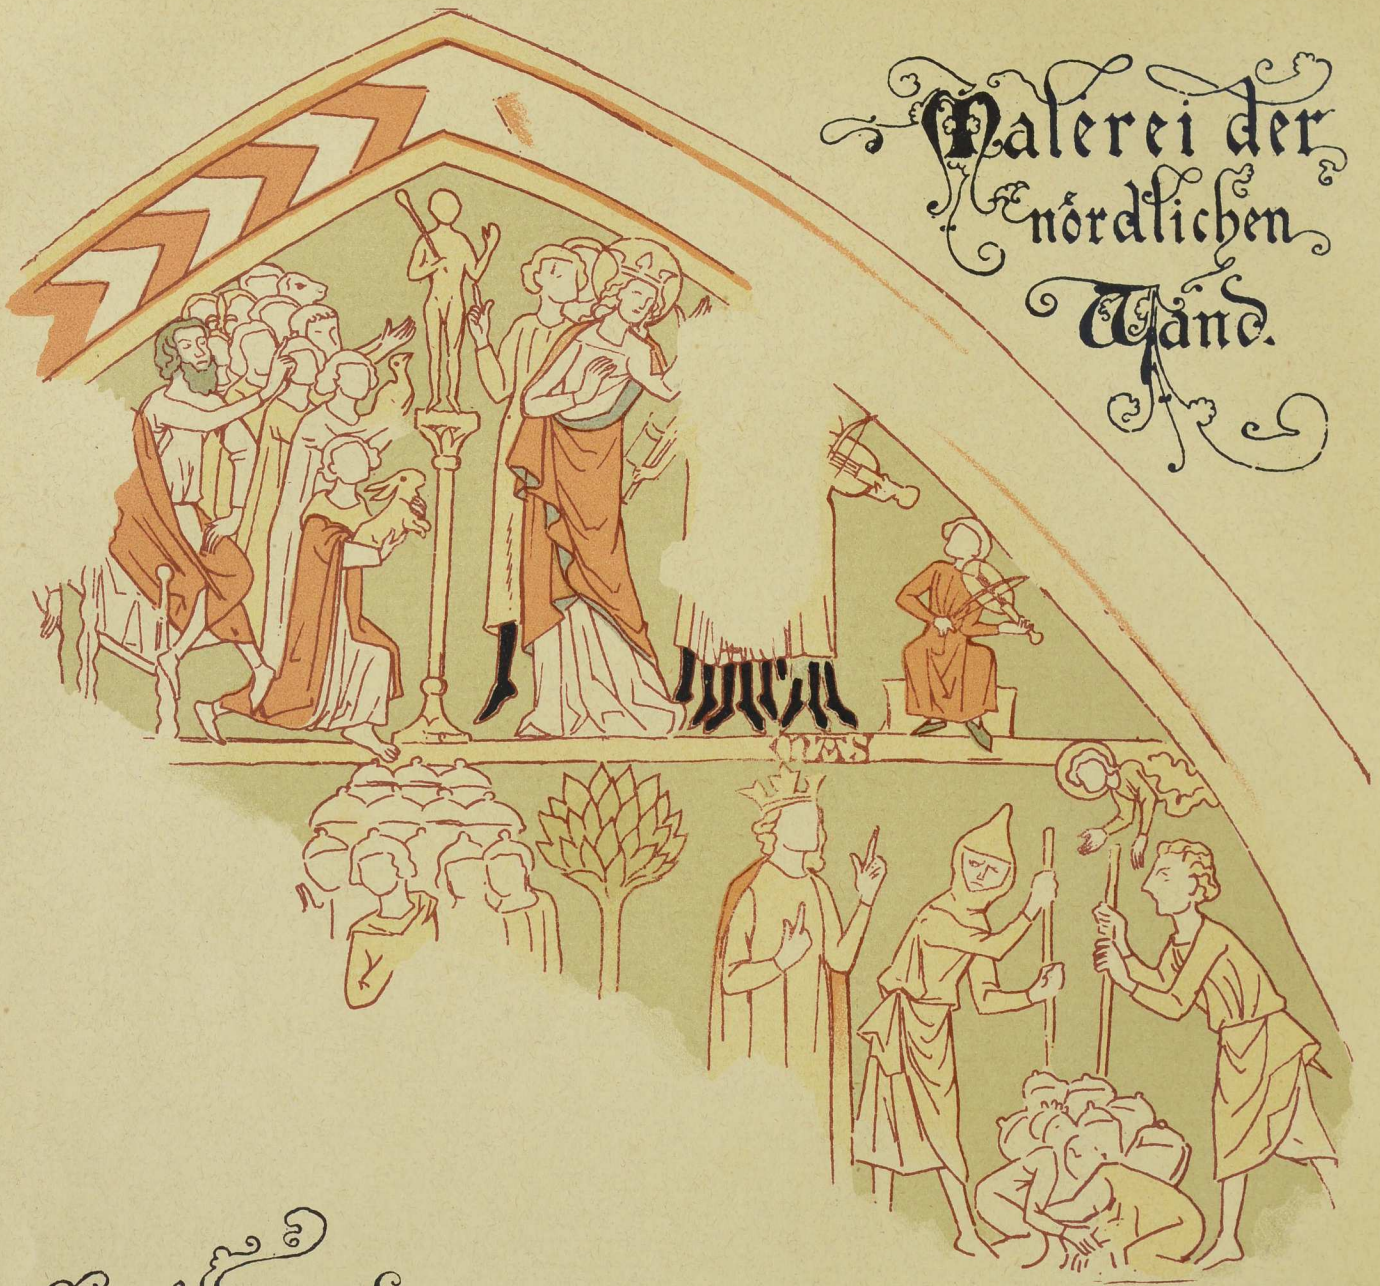 Malerei der
nördlichen
Wand.
MAS